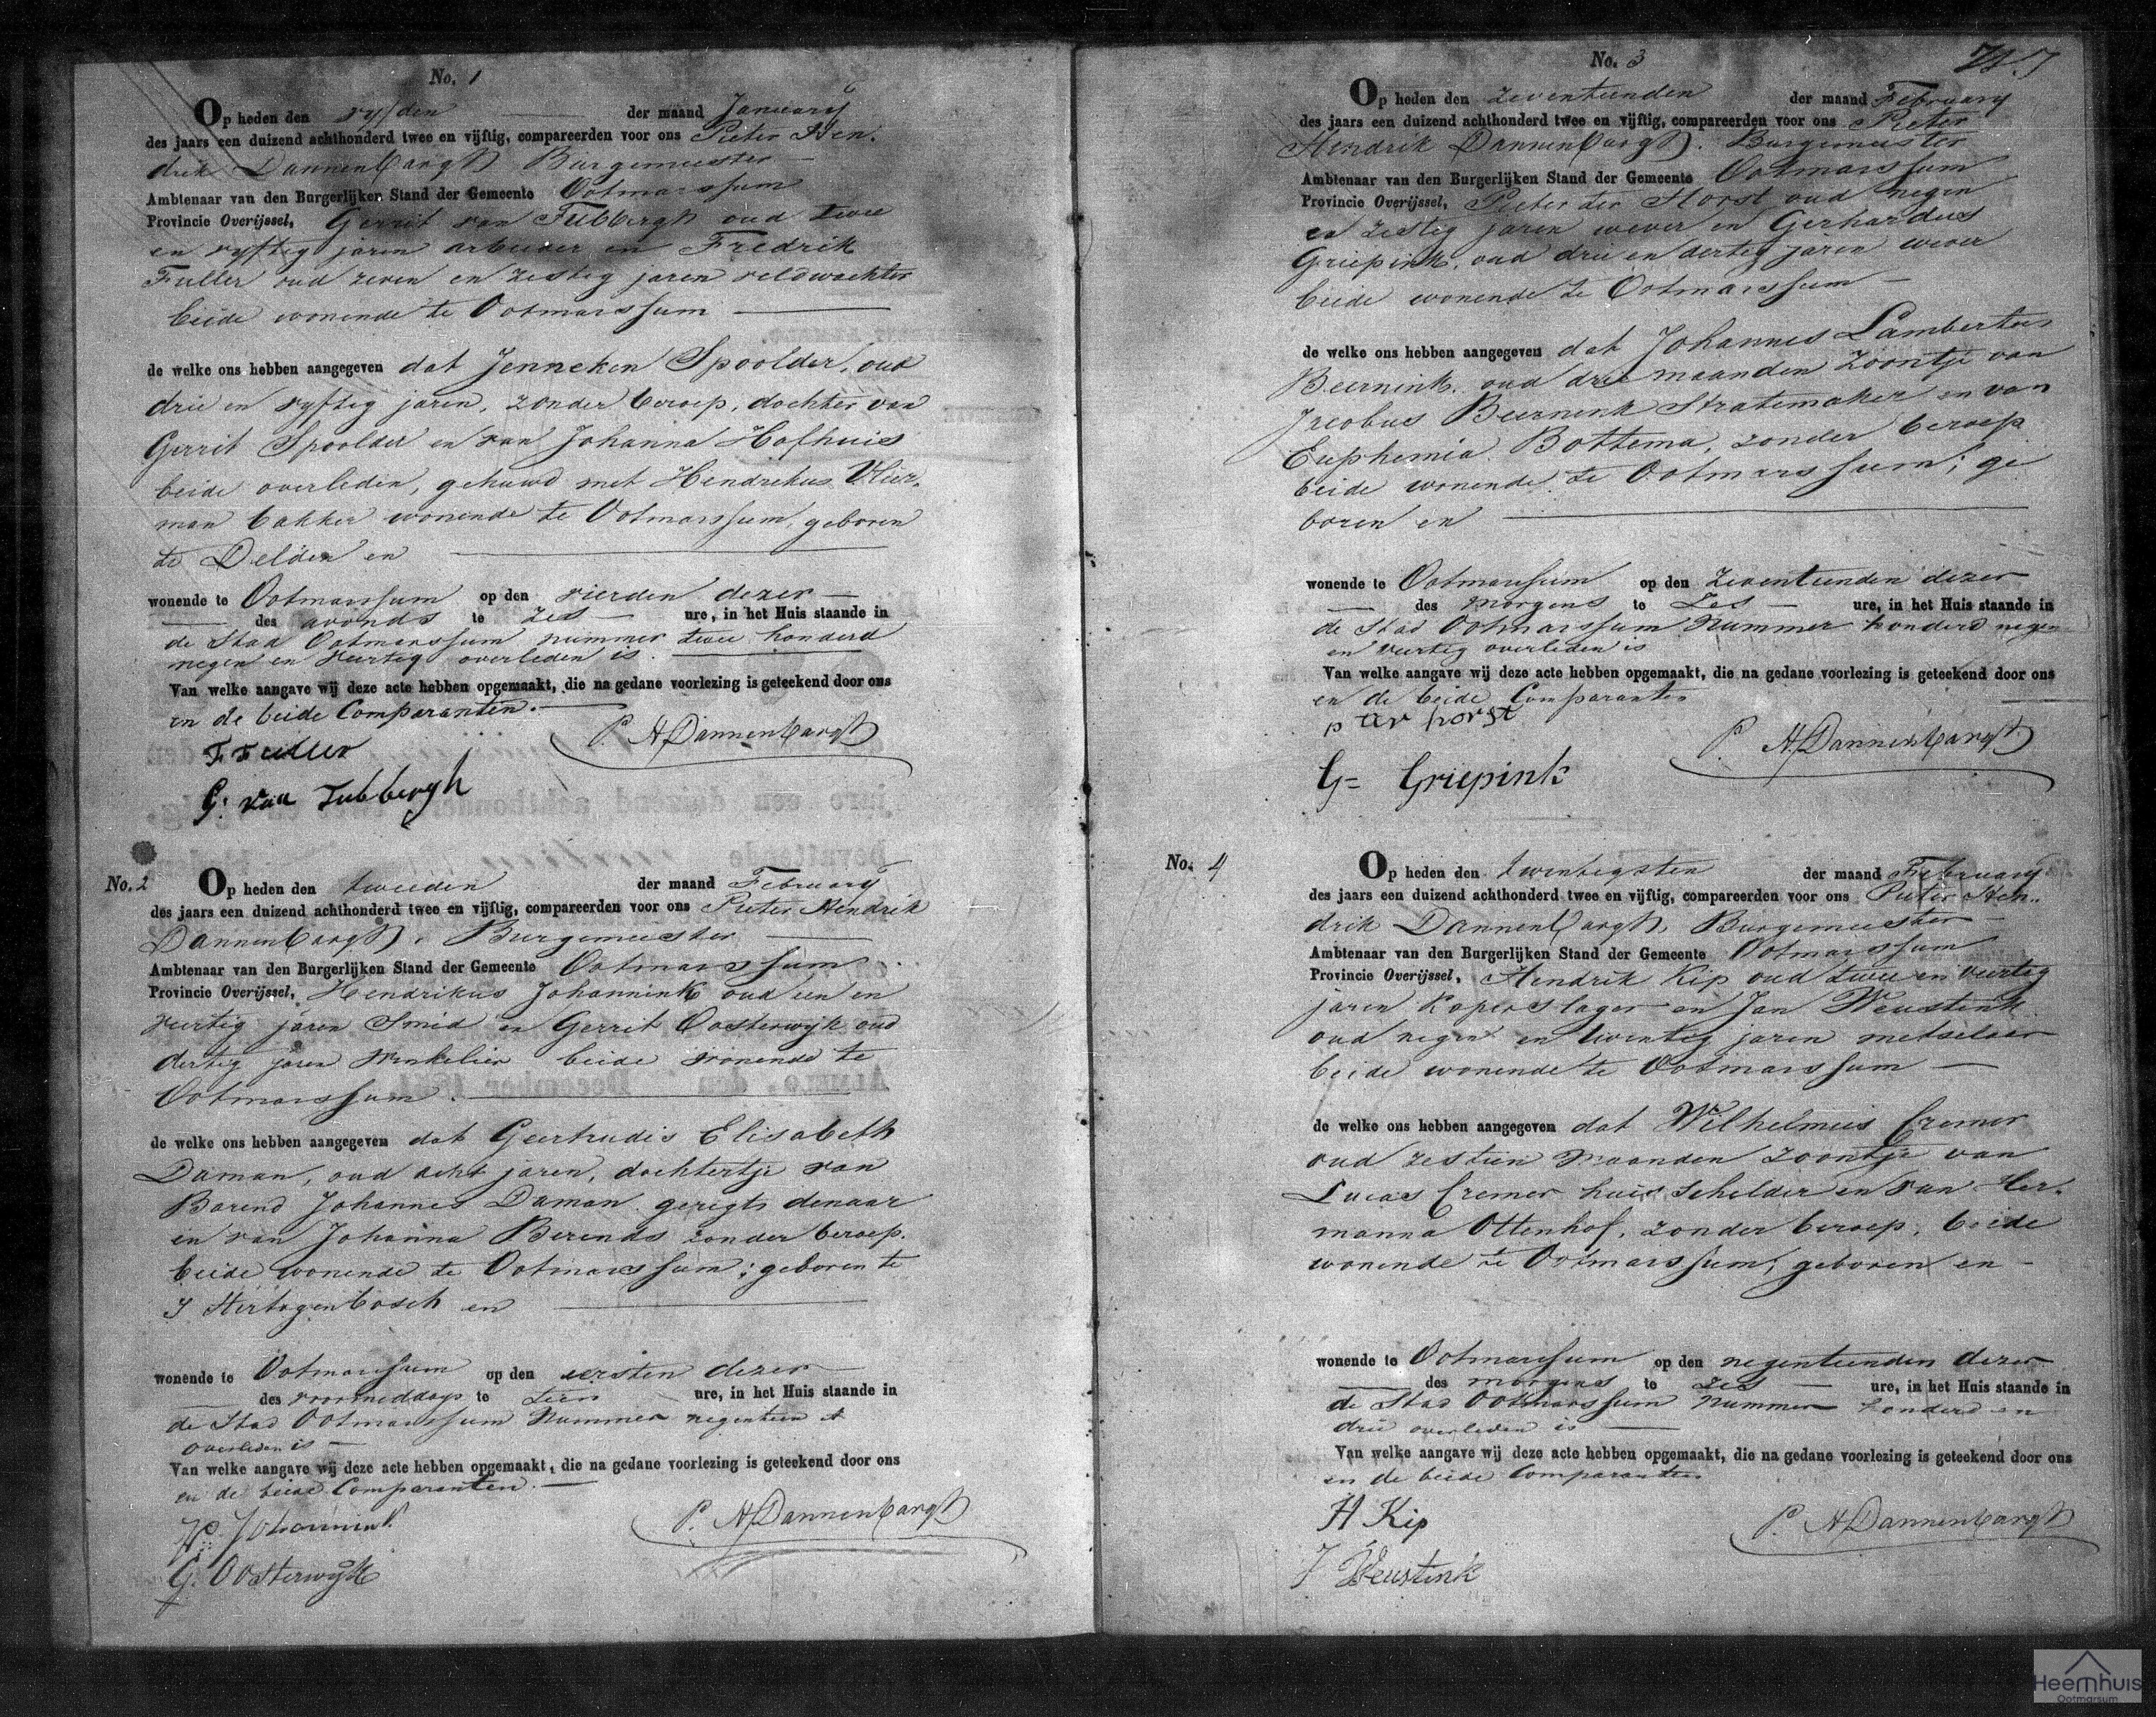 No. 1
Op heden den vyfden der maand January
des jaars een duizend achthonderd twee en vijftig, compareerden voor ons Pieter Hen-
drik Dannenbargh Burgemeester
Ambtenaar van den Burgerlijken Stand der Gemeente Ootmarssum
Provincie Overijssel, Gerrit van Tubbergh oud twee
en vyftig jaren arbeider en Fredrik
Fuller oud zeven en zestig jaren veldwachter
beide wonende te Ootmarssum
de welke ons hebben aangegeven dat Jenneken Spoolder, oud
drie en vyftig jaren, zonder beroep, dochter van
Gerrit Spoolder en van Johanna Hofhuis
beide overleden, gehuwd met Hendrekus Vleer-
man bakker wonende te Ootmarssum, geboren
te Delden en
wonende te Ootmarssum op den vierden dezer
des avonds te zes ure, in het Huis staande in
de Stad Ootmarssum nummer twee honderd
negen en veertig overleden is.
Van welke aangave wij deze acte hebben opgemaakt, die na gedane voorlezing is geteekend door ons
en de beide Comparanten.
F Fuller
P. H Dannenbargh
G. van Tubbergh
No. 2
Op heden den tweeden der maand February
des jaars een duizend achthonderd twee en vijftig, compareerden voor ons Pieter Hendrik
Dannenbargh, Burgemeester
Ambtenaar van den Burgerlijken Stand der Gemeente Ootmarssum
Provincie Overijssel, Hendrikus Johannink oud een en
veertig jaren Smid en Gerrit Oosterwijk oud
dertig jaren Winkelier beide wonende te
Ootmarssum.
de welke ons hebben aangegeven dat Geertrudis Elisabeth
Daman, oud acht jaren, dochtertje van
Barend Johannes Daman geregts denaar
en van Johanna Berends zonder beroep.
beide wonende te Ootmarssum; geboren te
S Hertogenbosch en
wonende te Ootmarssum op den eersten dezer
des voormeddags te tien ure, in het Huis staande in
de Stad Ootmarssum Nummer negentien
overleden is
Van welke aangave wij deze acte hebben opgemaakt, die na gedane voorlezing is geteekend door ons
en de beide Comparanten.
H. Johannink
P. H Dannenbargh
G. Oosterwijk
No. 3
Op heden den zeventienden der maand February
des jaars een duizend achthonderd twee en vijftig, compareerden voor ons Pieter
Hendrik Dannenbargh. Burgemeester
Ambtenaar van den Burgerlijken Stand der Gemeente Ootmarssum
Provincie Overijssel, Pieter ter Horst oud negen
en zestig jaren wever en Gerhardus
Griepink, oud drie en dertig jaren wever
beide wonende te Ootmarssum
de welke ons hebben aangegeven dat Johannes Lambertus
Beernink. oud drie maanden zoontje van
Jacobus Beernink Stratemaker en van
Euphemia Bottema, zonder beroep
beide wonende te Ootmarssum; ge
boren en
wonende te Ootmarssum op den zeventienden dezer
des morgens te zes ure, in het Huis staande in
de Stad Ootmarssum Nummer honderd negen
en veertig overleden is
Van welke aangave wij deze acte hebben opgemaakt, die na gedane voorlezing is geteekend door ons
en de beide Comparanten
p ter horst
P. H Dannenbargh
G= Griepink
No. 4
Op heden den twentigsten der maand February
des jaars een duizend achthonderd twee en vijftig, compareerden voor ons Pieter Hen-
drik Dannenbargh, Burgemeester
Ambtenaar van den Burgerlijken Stand der Gemeente Ootmarssum
Provincie Overijssel, Hendrik Kip oud twee en veertig
jaren koperslager en Jan Weustink
oud negen en twentig jaren metselaar
beide wonende te Ootmarssum
de welke ons hebben aangegeven dat Wilhelmus Cremer
oud zestien maanden zoontje van
Lucas Cremer huis schelder en van Her-
manna Ottenhof, zonder beroep, beide
wonende te Ootmarssum, geboren en
wonende te Ootmarssum op den negentienden dezer
des morgens te zes ure, in het Huis staande in
de Stad Ootmarssum nummer honderd en
drie overleden is
Van welke aangave wij deze acte hebben opgemaakt, die na gedane voorlezing is geteekend door ons
en de beide Comparanten
H Kip
P. H Dannenbargh
J Weustink
Heemhuis
Ootmarsum